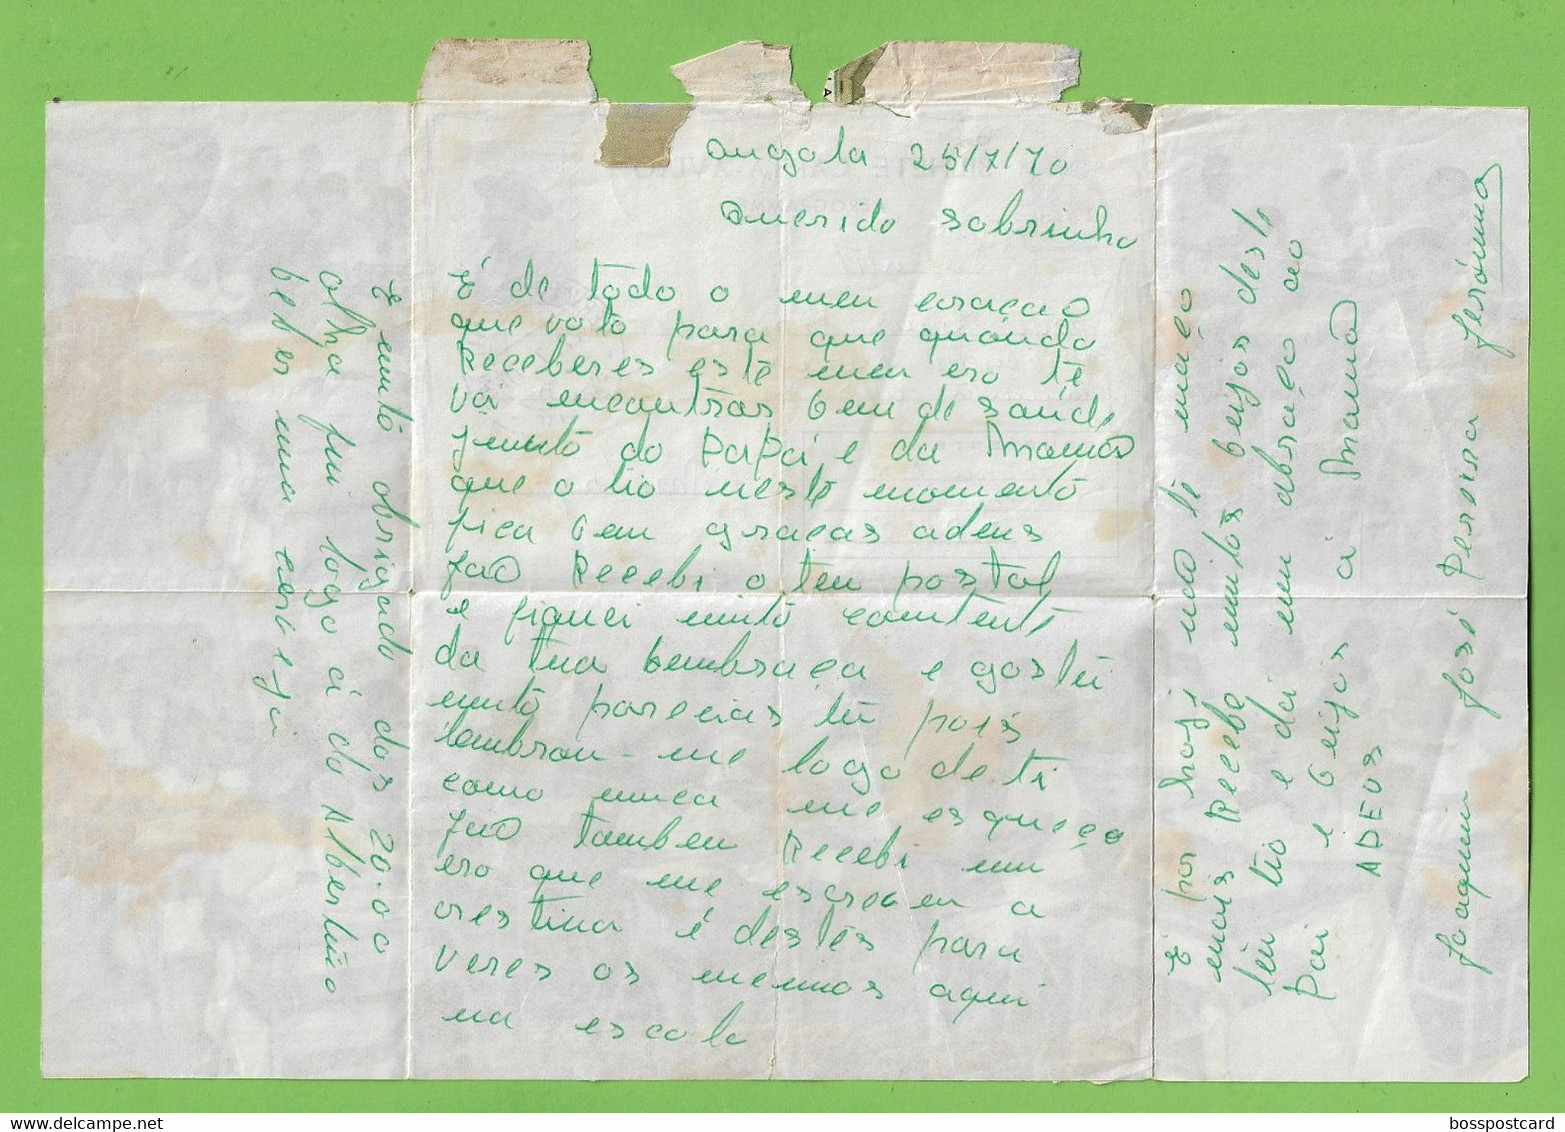 Angola 25/7/70
Querido Sobrinho
É de todo o meu coração
que voto para que quando
Receberes este meu ero te
vá encontrar bem de saúde,
junto do Papá, e da Mamã
que o tio neste momento
fica bem graças adeus
Jão Recebi o teu postal
e fiquei muito contente
da tua lembraça e gostei
muito parecias tu pois
lembrou-me logo de ti
como nunca me esqueço
Jão tambem Recebi um
ero que me escreveu a
crestina é destes para
veres os meninos aqui
na escola
E muito obrigado dos 20.00
olha fui logo á do Albertino
beber uma cerveja
E por hoje não ti maço
mais Recebe muitos beijos deste
teu tio e dá um abraço ao
Pai e beijos á Mamã
ADEUS
Joaquim José Pereira Jerónimo
bosspostcard